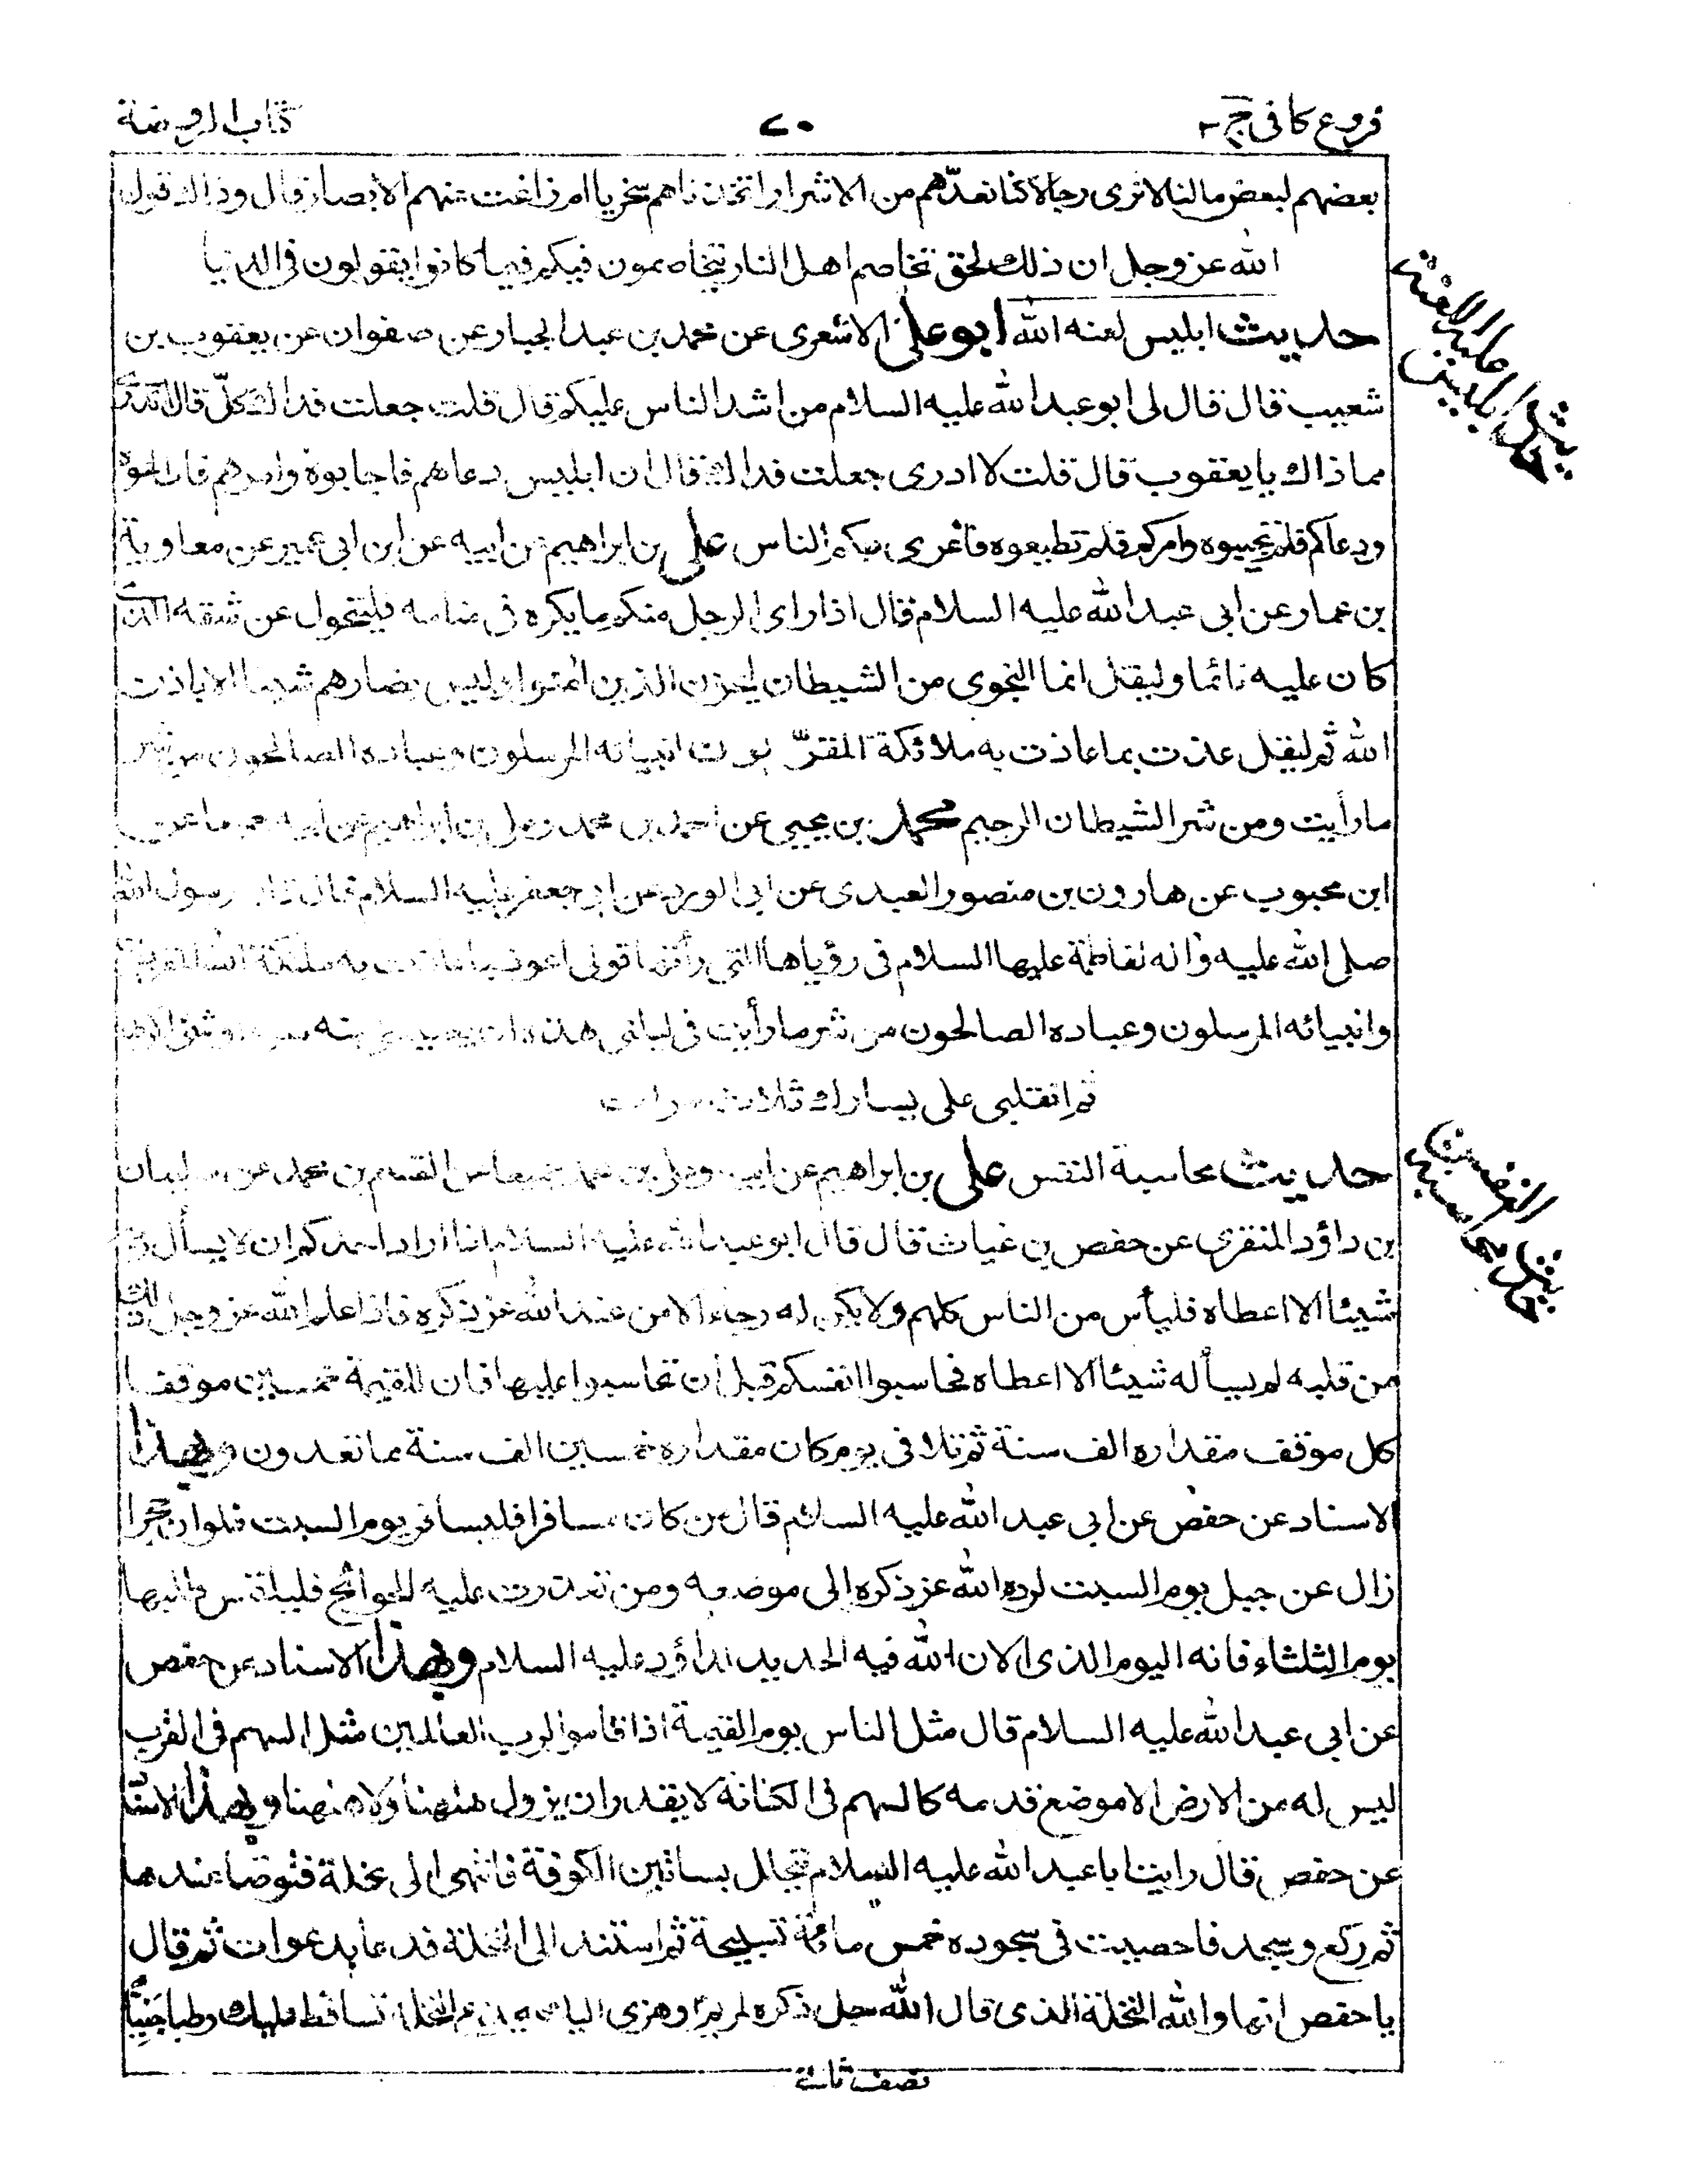 فروع كافى ج ٣
٧٠
كتاب الروضة
بعضهم لبعض مالنا لا نرى رجالا كنا نعدّهم من الاشرار اتخذناهم سخريا ام زاغت عنهم الابصار قال وذلك قول
الله عز وجل ان ذلك لحق تخاصم اهل النار يتخاصمون فيكم فيما كانوا يقولون فى الدنيا
حديث ابليس لعنه الله ابو على الاشعرى عن محمد بن عبد الجبار عن صفوان عن يعقوب بن
شعيب قال قال لى ابو عبد الله عليه السلام من اشد الناس عليكم قال قلت جعلت فداك كلّ قال اتدرى
مما ذاك يا يعقوب قال قلت لا ادرى جعلت فداك قال ان ابليس دعاهم فاجابوه وامرهم فاطاعوه
ودعاكم فلم تجيبوه وامركم فلم تطيعوه فاغرى بكم الناس على بن ابراهيم عن ابيه عن ابن ابى عمير عن معاوية
بن عمار عن ابى عبد الله عليه السلام قال اذا راى الرجل منكم ما يكره فى منامه فليتحول عن شقه الذى
كان عليه نائما وليقل انما النجوى من الشيطان ليحزن الذين امنوا وليس بضارهم شيئا الا باذن
الله ثم ليقل عذت بما عاذت به ملائكة المقرّبون انبيائه المرسلون وعباده الصالحون من شر
ما رأيت ومن شر الشيطان الرجيم محمد بن يحيى عن احمد بن محمد وعلى بن ابراهيم عن ابيه جميعا عن
ابن محبوب عن هارون بن منصور العبدى عن ابى الورد عن ابى جعفر عليه السلام قال قال رسول الله
صلى الله عليه واله لفاطمة عليها السلام فى رؤياها التى رأتها قولى اعوذ بما عاذت به ملئكة الله المقربون
وانبيائه المرسلون وعباده الصالحون من شر ما رأيت فى ليلتى هذه ان يصيبنى منه سوء او شئ اكرهه
ثم انقلبى على يسارك ثلاث مرات
حديث محاسبة النفس على بن ابراهيم عن ابيه وعلى بن محمد جميعا عن القسم بن محمد عن سليمان
بن داؤد المنقرى عن حفص بن غياث قال قال ابو عبد الله عليه السلام اذا اراد احدكم ان لا يسأل ربه
شيئا الا اعطاه فليأس من الناس كلهم ولا يكون له رجاء الا من عند الله عز ذكره فاذا علم الله عز وجل ذلك
من قلبه لم يسأله شيئا الا اعطاه فحاسبوا انفسكم قبل ان تحاسبوا عليها فان للقيمة خمسين موقفا
كل موقف مقداره الف سنة ثم تلا فى يوم كان مقداره خمسين الف سنة مما تعدون وبهذا
الاسناد عن حفص عن ابى عبد الله عليه السلام قال من كان مسافرا فليسافر يوم السبت فلو ان حجرا
زال عن جبل يوم السبت لرده الله عز ذكره الى موضعه ومن تعذرت عليه الحوائج فليلتمس طلبها
يوم الثلثاء فانه اليوم الذى الان الله فيه الحديد لداؤد عليه السلام وبهذا الاسناد عن حفص
عن ابى عبد الله عليه السلام قال مثل الناس يوم القيمة اذا قاموا لرب العالمين مثل السهم فى القرب
ليس له من الارض الا موضع قدمه كالسهم فى الكنانة لا يقدر ان يزول ههنا ولا ههنا وبهذا الاسناد
عن حفص قال رايت ابا عبد الله عليه السلام يتخلل بساتين الكوفة فانتهى الى نخلة فتوضا عندها
ثم ركع وسجد فاحصيت فى سجوده خمس مائة تسبيحة ثم استند الى النخلة فدعا بدعوات ثم قال
يا حفص انها والله النخلة الذى قال الله جل ذكره لمريم وهزى اليك بجذع النخلة تساقط عليك رطبا جنيّا
نصف ثانى
حديث ابليس عليه اللعنة
حديث محاسبة النفس